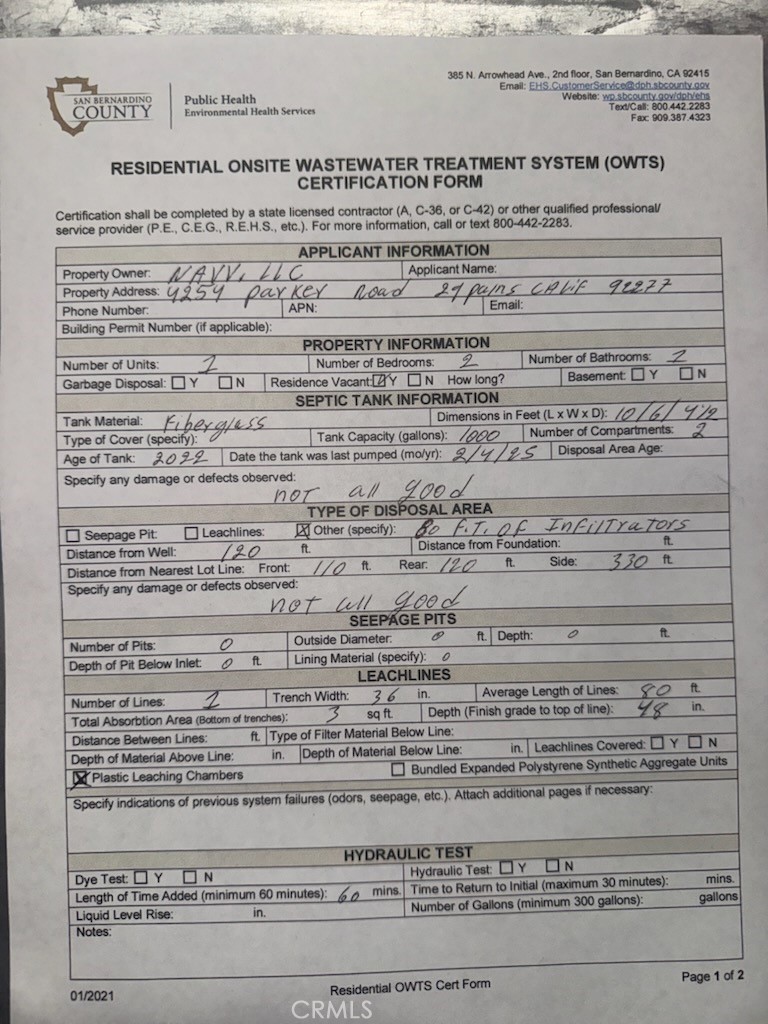 SAN BERNARDINO
COUNTY
Public Health
Environmental Health Services
385 N. Arrowhead Ave., 2nd floor, San Bernardino, CA 92415
Email: EHS.CustomerService@dph.sbcounty.gov
Website: wp.sbcounty.gov/dph/ehs
Text/Call: 800.442.2283
Fax: 909.387.4323
RESIDENTIAL ONSITE WASTEWATER TREATMENT SYSTEM (OWTS)
CERTIFICATION FORM
Certification shall be completed by a state licensed contractor (A, C-36, or C-42) or other qualified professional/
service provider (P.E., C.E.G., R.E.H.S., etc.). For more information, call or text 800-442-2283.
APPLICANT INFORMATION
Property Owner: NAVV, LLC Applicant Name:
Property Address: 4254 parker Road 29 palms CALIF 92277
Phone Number: APN: Email:
Building Permit Number (if applicable):
PROPERTY INFORMATION
Number of Units: 1 Number of Bedrooms: 2 Number of Bathrooms: 2
Garbage Disposal: ☐ Y ☐ N Residence Vacant: ☑ Y ☐ N How long? Basement: ☐ Y ☐ N
SEPTIC TANK INFORMATION
Tank Material: Fiberglass Dimensions in Feet (L x W x D): 10/6/4 1/2
Type of Cover (specify): Tank Capacity (gallons): 1000 Number of Compartments: 2
Age of Tank: 2022 Date the tank was last pumped (mo/yr): 2/4/25 Disposal Area Age:
Specify any damage or defects observed:
not all good
TYPE OF DISPOSAL AREA
☐ Seepage Pit: ☐ Leachlines: ☒ Other (specify): 80 F.T. OF InFilTrators
Distance from Well: 120 ft. Distance from Foundation: ft.
Distance from Nearest Lot Line: Front: 110 ft. Rear: 120 ft. Side: 330 ft.
Specify any damage or defects observed:
not all good
SEEPAGE PITS
Number of Pits: 0 Outside Diameter: 0 ft. Depth: 0 ft.
Depth of Pit Below Inlet: 0 ft. Lining Material (specify): 0
LEACHLINES
Number of Lines: 1 Trench Width: 36 in. Average Length of Lines: 80 ft.
Total Absorbtion Area (Bottom of trenches): 3 sq ft. Depth (Finish grade to top of line): 48 in.
Distance Between Lines: ft. Type of Filter Material Below Line:
Depth of Material Above Line: in. Depth of Material Below Line: in. Leachlines Covered: ☐ Y ☐ N
☒ Plastic Leaching Chambers ☐ Bundled Expanded Polystyrene Synthetic Aggregate Units
Specify indications of previous system failures (odors, seepage, etc.). Attach additional pages if necessary:
HYDRAULIC TEST
Dye Test: ☐ Y ☐ N Hydraulic Test: ☐ Y ☐ N
Length of Time Added (minimum 60 minutes): 60 mins. Time to Return to Initial (maximum 30 minutes): mins.
Liquid Level Rise: in. Number of Gallons (minimum 300 gallons): gallons
Notes:
01/2021 Residential OWTS Cert Form Page 1 of 2
CRMLS